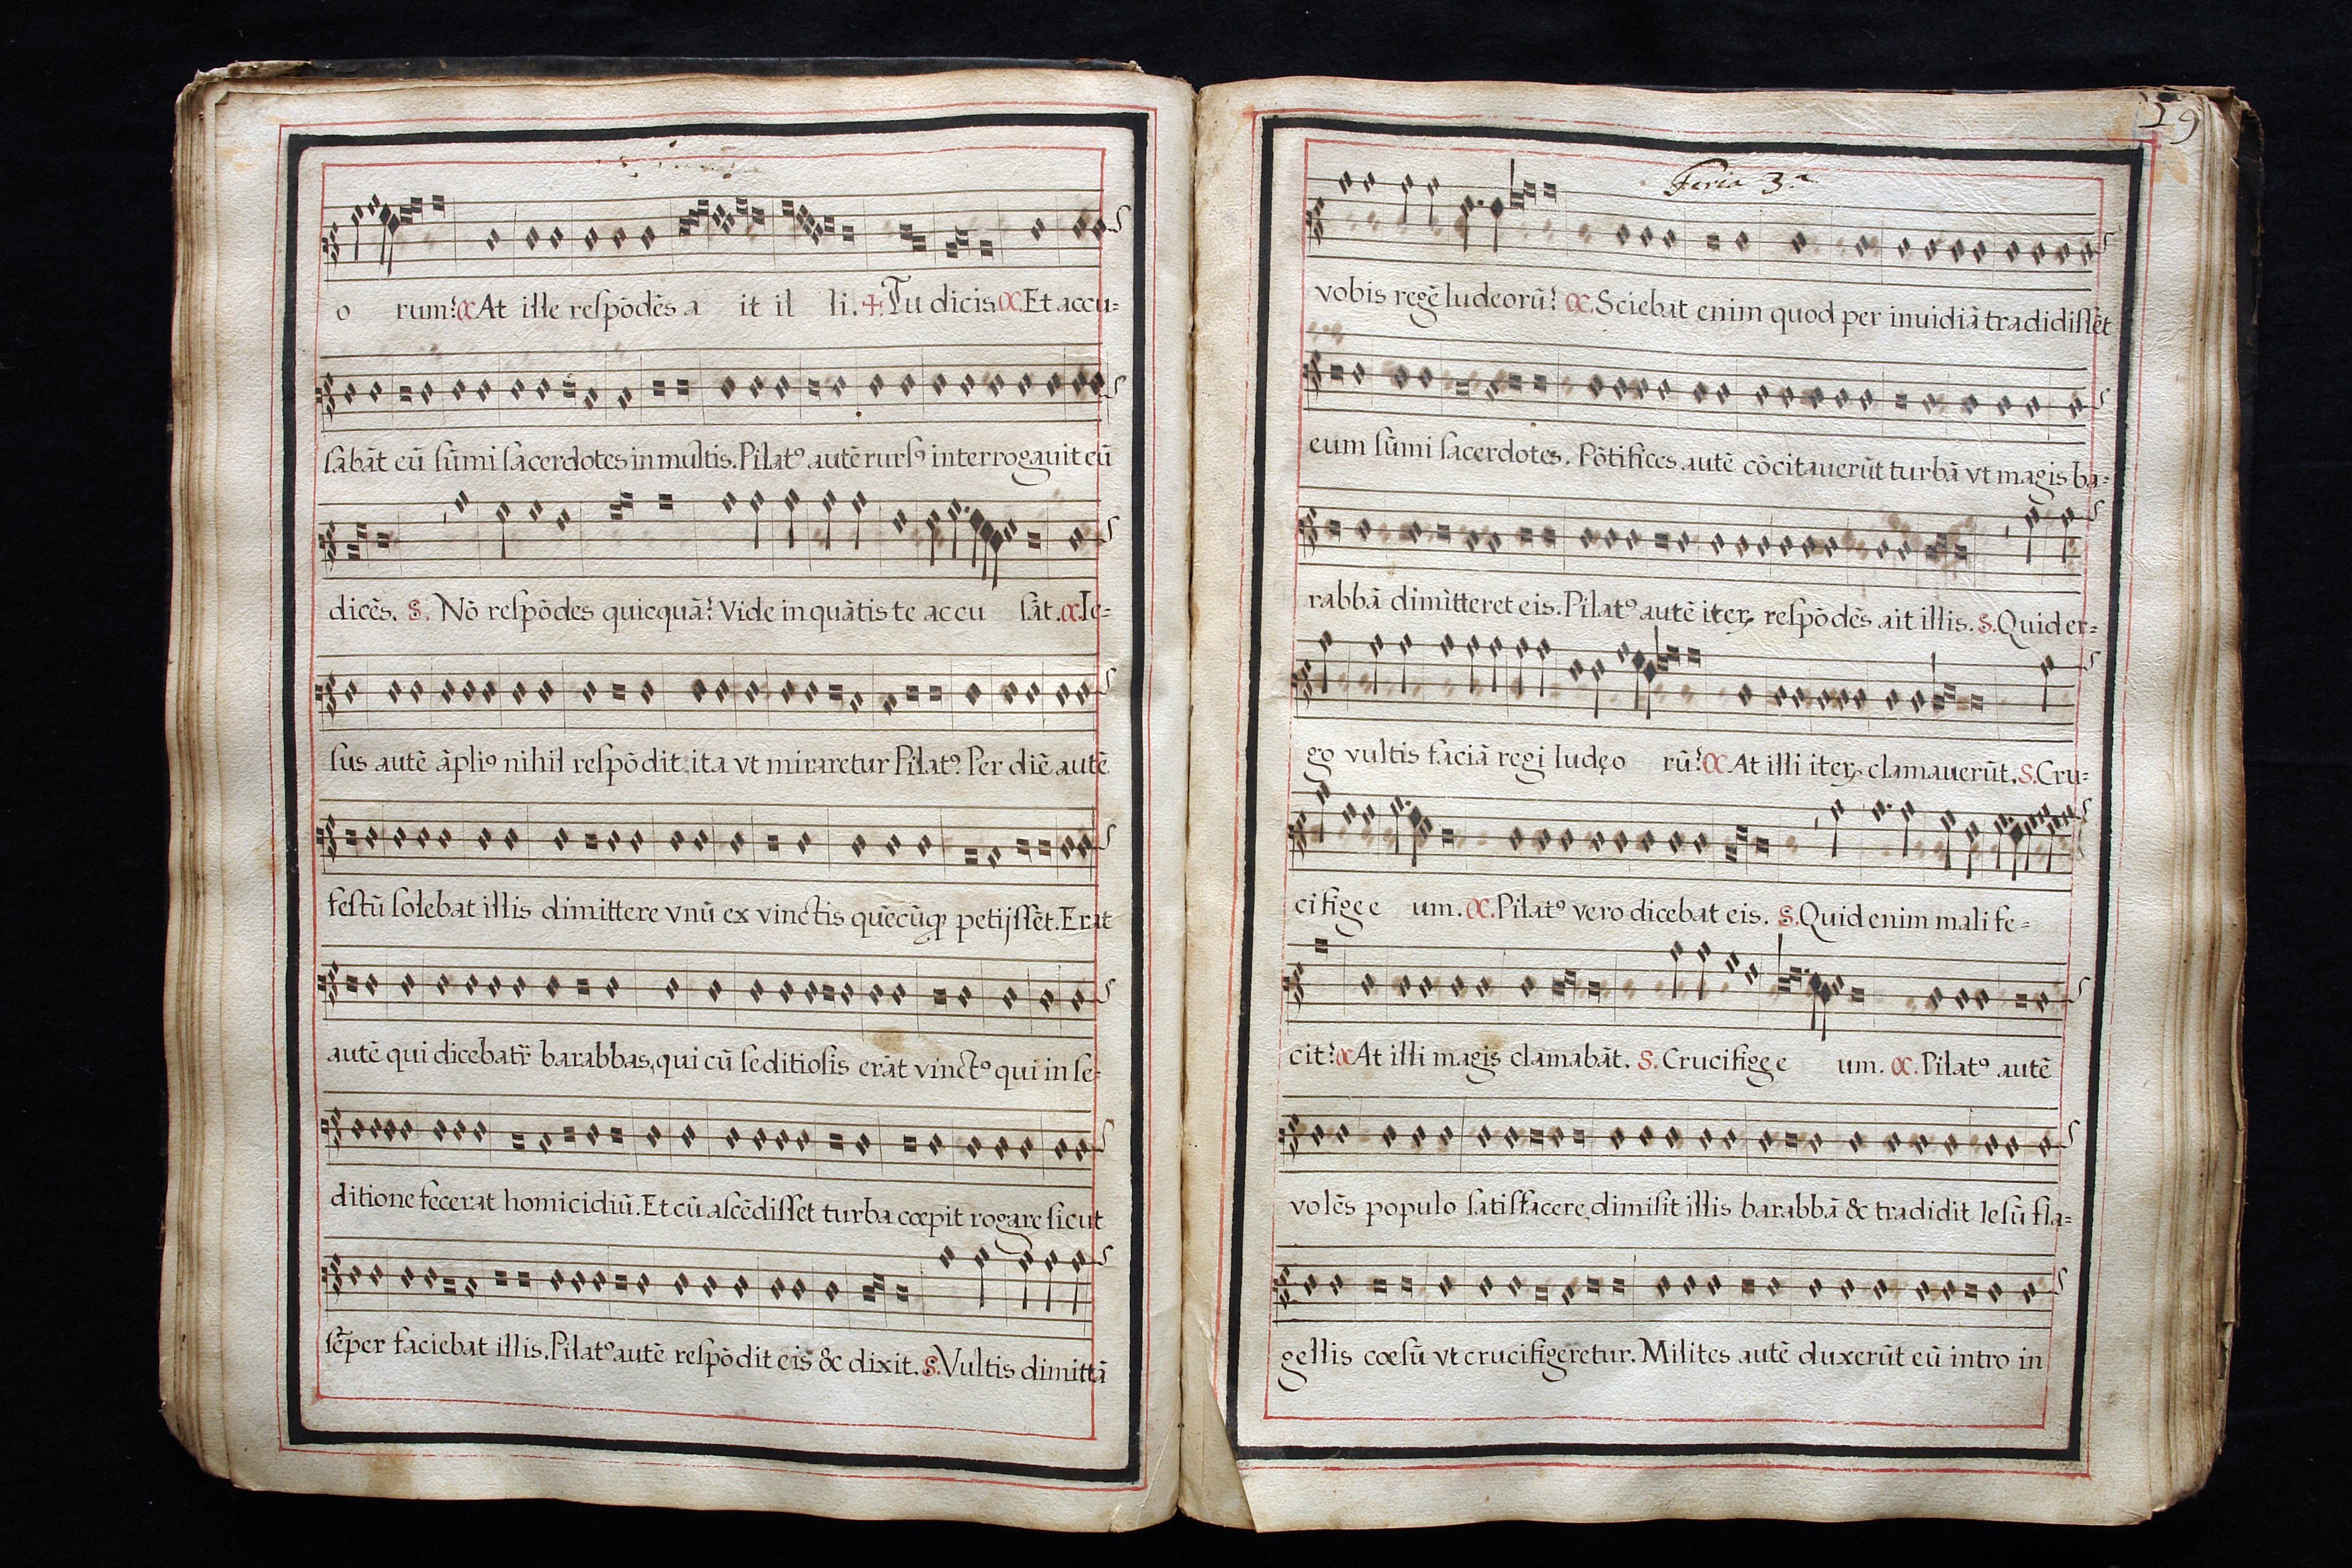 o rum? C. At ille respōdēs a it il li. ✢. Tu dicis C. Et accu=
sabāt eū sūmi sacerdotes in multis. Pilatꝰ autē rursꝰ interrogauit eū
dicēs. S. Nō respōdes quicquā? Vide in quātis te accu sāt. C. Ie=
sus autē āpliꝰ nihil respōdit, ita vt miraretur Pilatꝰ. Per diē autē
festū solebat illis dimittere vnū ex vinctis quēcūqꝫ petijssēt. Erat
autē qui dicebatr̄ barabbas, qui cū seditiosis erāt vinctꝰ qui in se=
ditione fecerat homicidiū. Et cū ascēdisset turba cœpit rogare sicut
sēper faciebat illis. Pilatꝰ autē respōdit eis & dixit. S. Vultis dimittā
59
Feria 3.ª
vobis regē Iudeorū? C. Sciebat enim quod per inuidiā tradidissēt
eum sūmi sacerdotes. Pōtifices autē cōcitauerūt turbā vt magis ba=
rabbā dimitteret eis. Pilatꝰ autē iteꝝ respōdēs ait illis. S. Quid er=
go vultis faciā regi Iudęo rū? C. At illi iteꝝ clamauerūt. S. Cru=
cifige e um. C. Pilatꝰ vero dicebat eis. S. Quid enim mali fe=
cit? C. At illi magis clamabāt. S. Crucifige e um. C. Pilatꝰ autē
volēs populo satisfacere, dimisit illis barabbā & tradidit Iesū fla=
gellis cœsū vt crucifigeretur. Milites autē duxerūt eū intro in